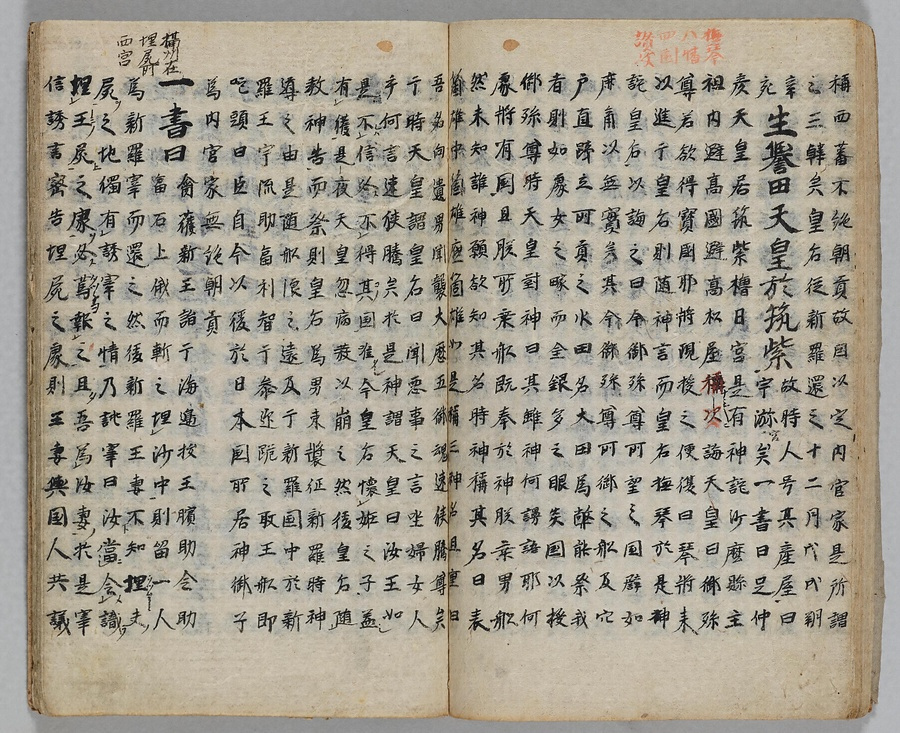 稱西蕃不絶朝貢故因以定内官家是所謂
之三韓矣皇后從新羅還之十二月戊戌朔
辛亥生譽田天皇於筑紫故時人号其産屋曰
宇瀰矣一書曰足仲
彦天皇居筑紫橿日宮是有神託沙麽縣主
祖内避高國避高松屋種次誨天皇曰御孫
尊若欲得寳國耶將現授之便復曰琴將来
以進于皇后則随神言而皇后撫琴於是神
託皇后以誨之曰今御孫尊可望之國譬如
鹿角以無實矣其今御孫尊可御之船及穴
戸直踐立可貢之水田名大田為幣能祭我
者則如處女之睩而金銀多之眼炎國以授
御孫尊時天皇對神曰其雖神何謾語耶何
處將有國且朕所乗船既奉於神朕乗男船
然未知誰神願欲知其名時神稱其名曰表
筒雄中筒雄底筒雄如是稱三神名且重曰
吾名向匱男聞襲大歴五御魂速狭騰尊矣
于時天皇謂皇后曰聞惡事之言坐婦女人
乎何言速狭騰矣於是神謂天皇曰汝王如
是不信必不得其國唯今皇后懐姙之子盖
有獲是夜天皇忽病發以崩之然後皇后随
教神告而祭則皇后為男束裝征新羅時神
導之由是随船浪之遠及于新羅國中於新
羅王宇流助富利智于参迎跪之取王船即
叩頭曰臣自今以後於日本國所居神御子
為内官家無絶朝貢
一書曰禽獲新王詣于海邊拔王臏助令助
富石上俄而斬之埋沙中則留一人
為新羅宰而還之然後新羅王妻不知埋夫
屍之地獨有誘宰之情乃誂宰曰汝當令識
埋王屍之處必篤報之且吾為汝妻於是宰
信誘言密告埋屍之處則王妻與國人共議